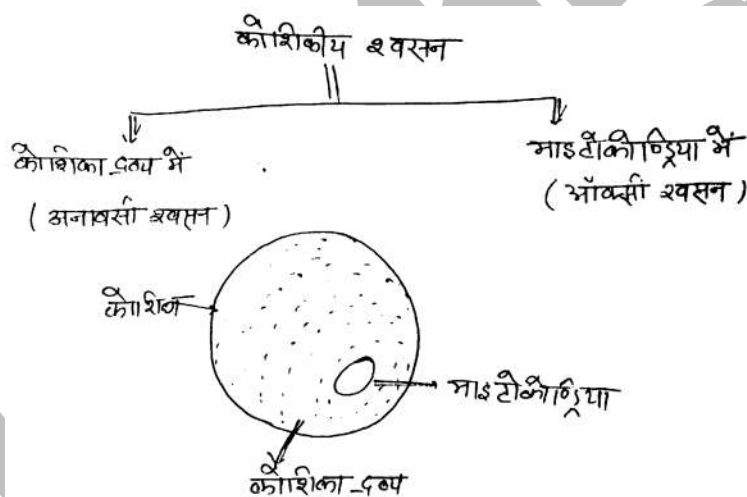 कोशिकीय श्वसन
कोशिका द्रव्य में
(अनाक्सी श्वसन)
माइटोकोण्ड्रिया में
(ऑक्सी श्वसन)
कोशिका
माइटोकोण्ड्रिया
कोशिका द्रव्य